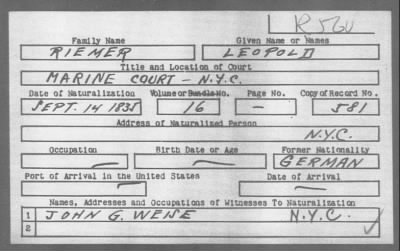 R 560
Family Name Given Name or Names
RIEMER LEOPOLD
Title and Location of Court
MARINE COURT - N.Y.C.
Date of Naturalization Volume or Bundle No. Page No. Copy of Record No.
SEPT. 14 1835 16 — 581
Address of Naturalized Person
N.Y.C.
Occupation Birth Date or Age Former Nationality
— — GERMAN
Port of Arrival in the United States Date of Arrival
— —
Names, Addresses and Occupations of Witnesses To Naturalization
1 JOHN G. WEISE N.Y.C.
2